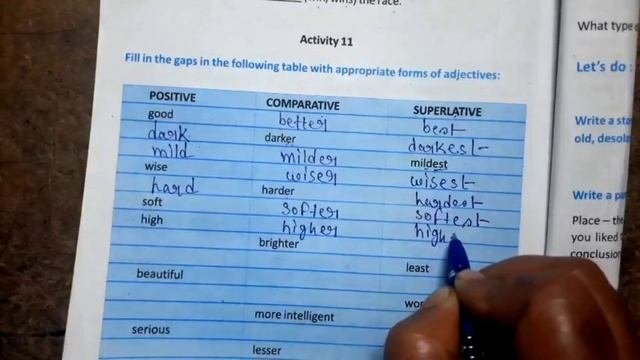 wins) the race.
Activity 11
Fill in the gaps in the following table with appropriate forms of adjectives:
POSITIVE COMPARATIVE SUPERLATIVE
good better best
dark darker darkest
mild milder mildest
wise wiser wisest
hard harder hardest
soft softer softest
high higher high
brighter
least
beautiful
more intelligent
serious
lesser
What type
Let's do
Write a
old,
Write a
Place –
you liked
conclusion